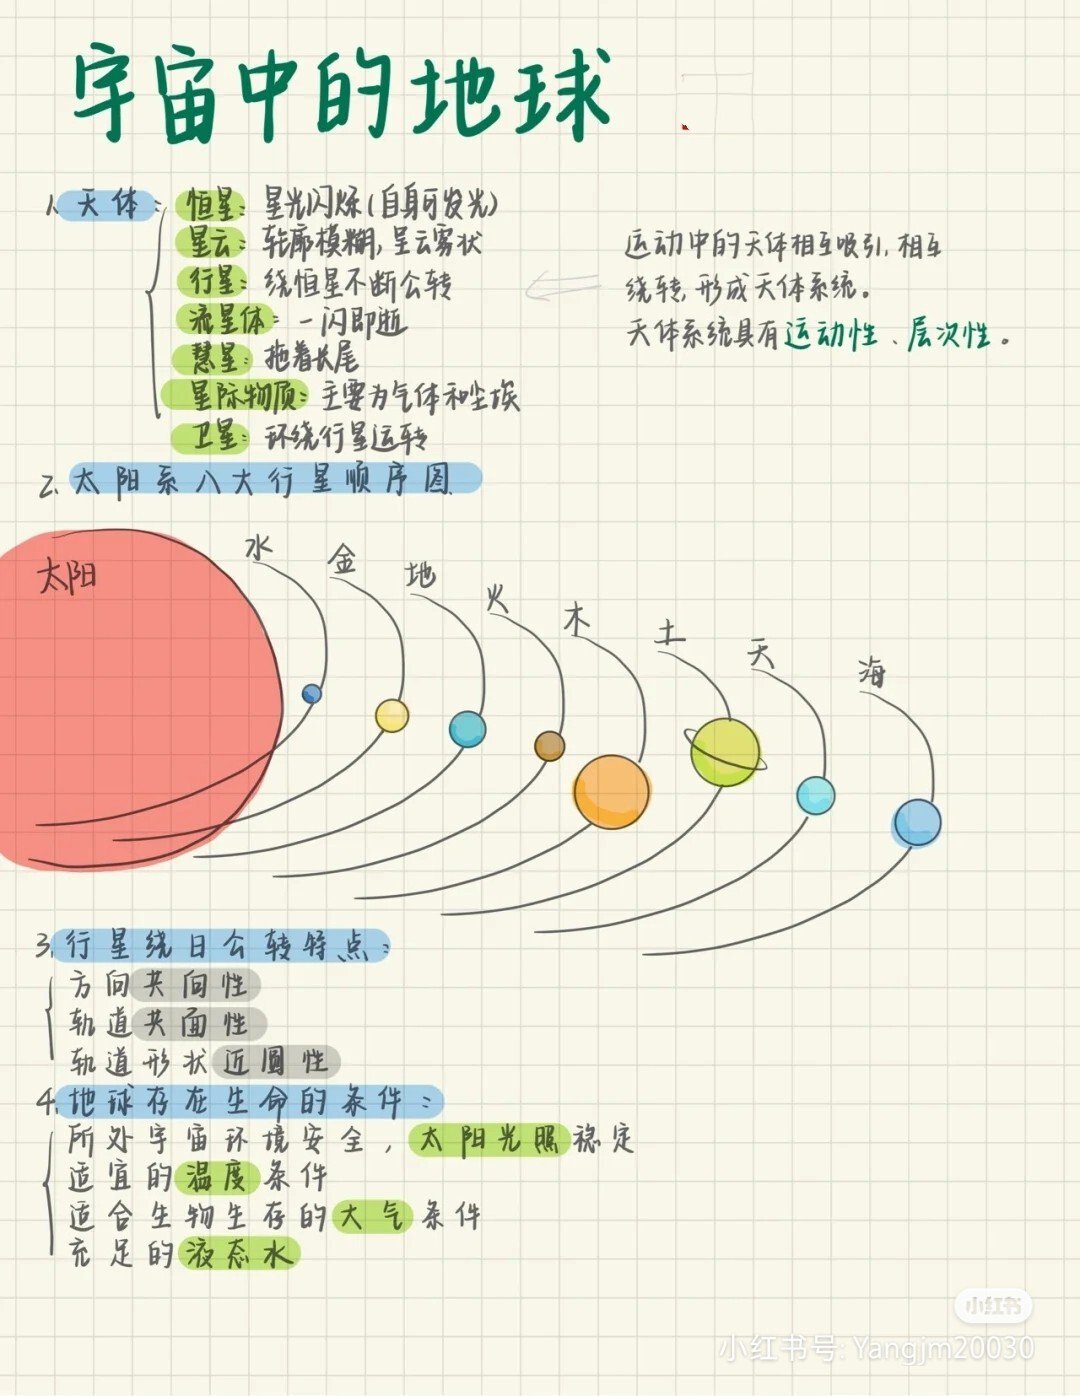 宇宙中的地球
1.天体：恒星：星光闪烁(自身可发光)
星云：轮廓模糊,呈云雾状
行星：绕恒星不断公转
流星体：一闪即逝
慧星：拖着长尾
星际物质：主要为气体和尘埃
卫星：环绕行星运转
运动中的天体相互吸引,相互
绕转,形成天体系统。
天体系统具有运动性、层次性。
2.太阳系八大行星顺序图
太阳
水
金
地
火
木
土
天
海
3.行星绕日公转特点：
方向共向性
轨道共面性
轨道形状近圆性
4.地球存在生命的条件：
所处宇宙环境安全，太阳光照稳定
适宜的温度条件
适合生物生存的大气条件
充足的液态水
小红书
小红书号: Yangjm20030